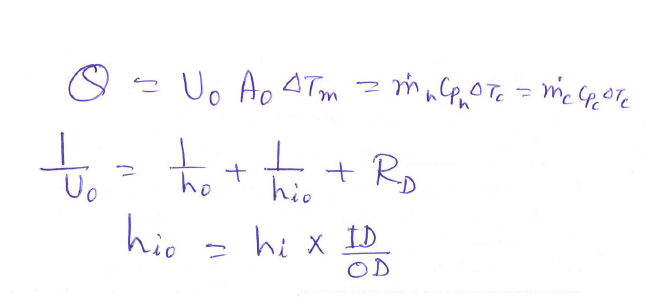 Q = U₀ A₀ ΔTm = ṁₕ Cpₕ ΔTc = ṁc Cpc ΔTc
1/U₀ = 1/h₀ + 1/hio + R_D
hio = hi × ID/OD